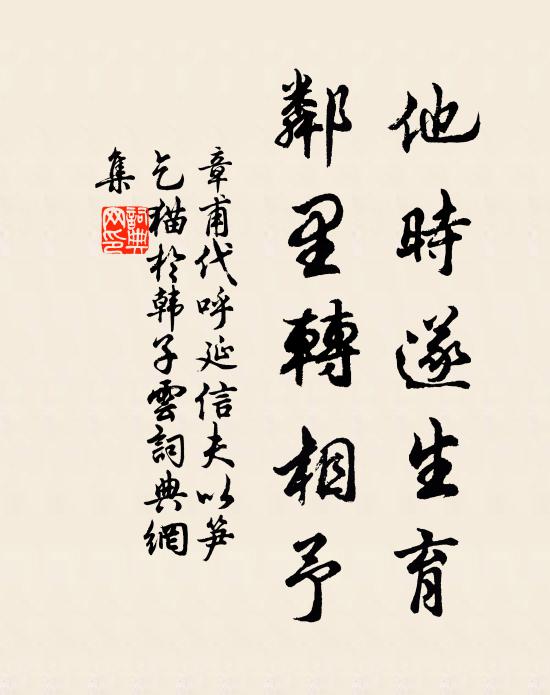 他時遂生育
鄰里轉相予
章甫代呼延信夫以笋
乞猫於韩子雲詞典網
集
詞典
网印